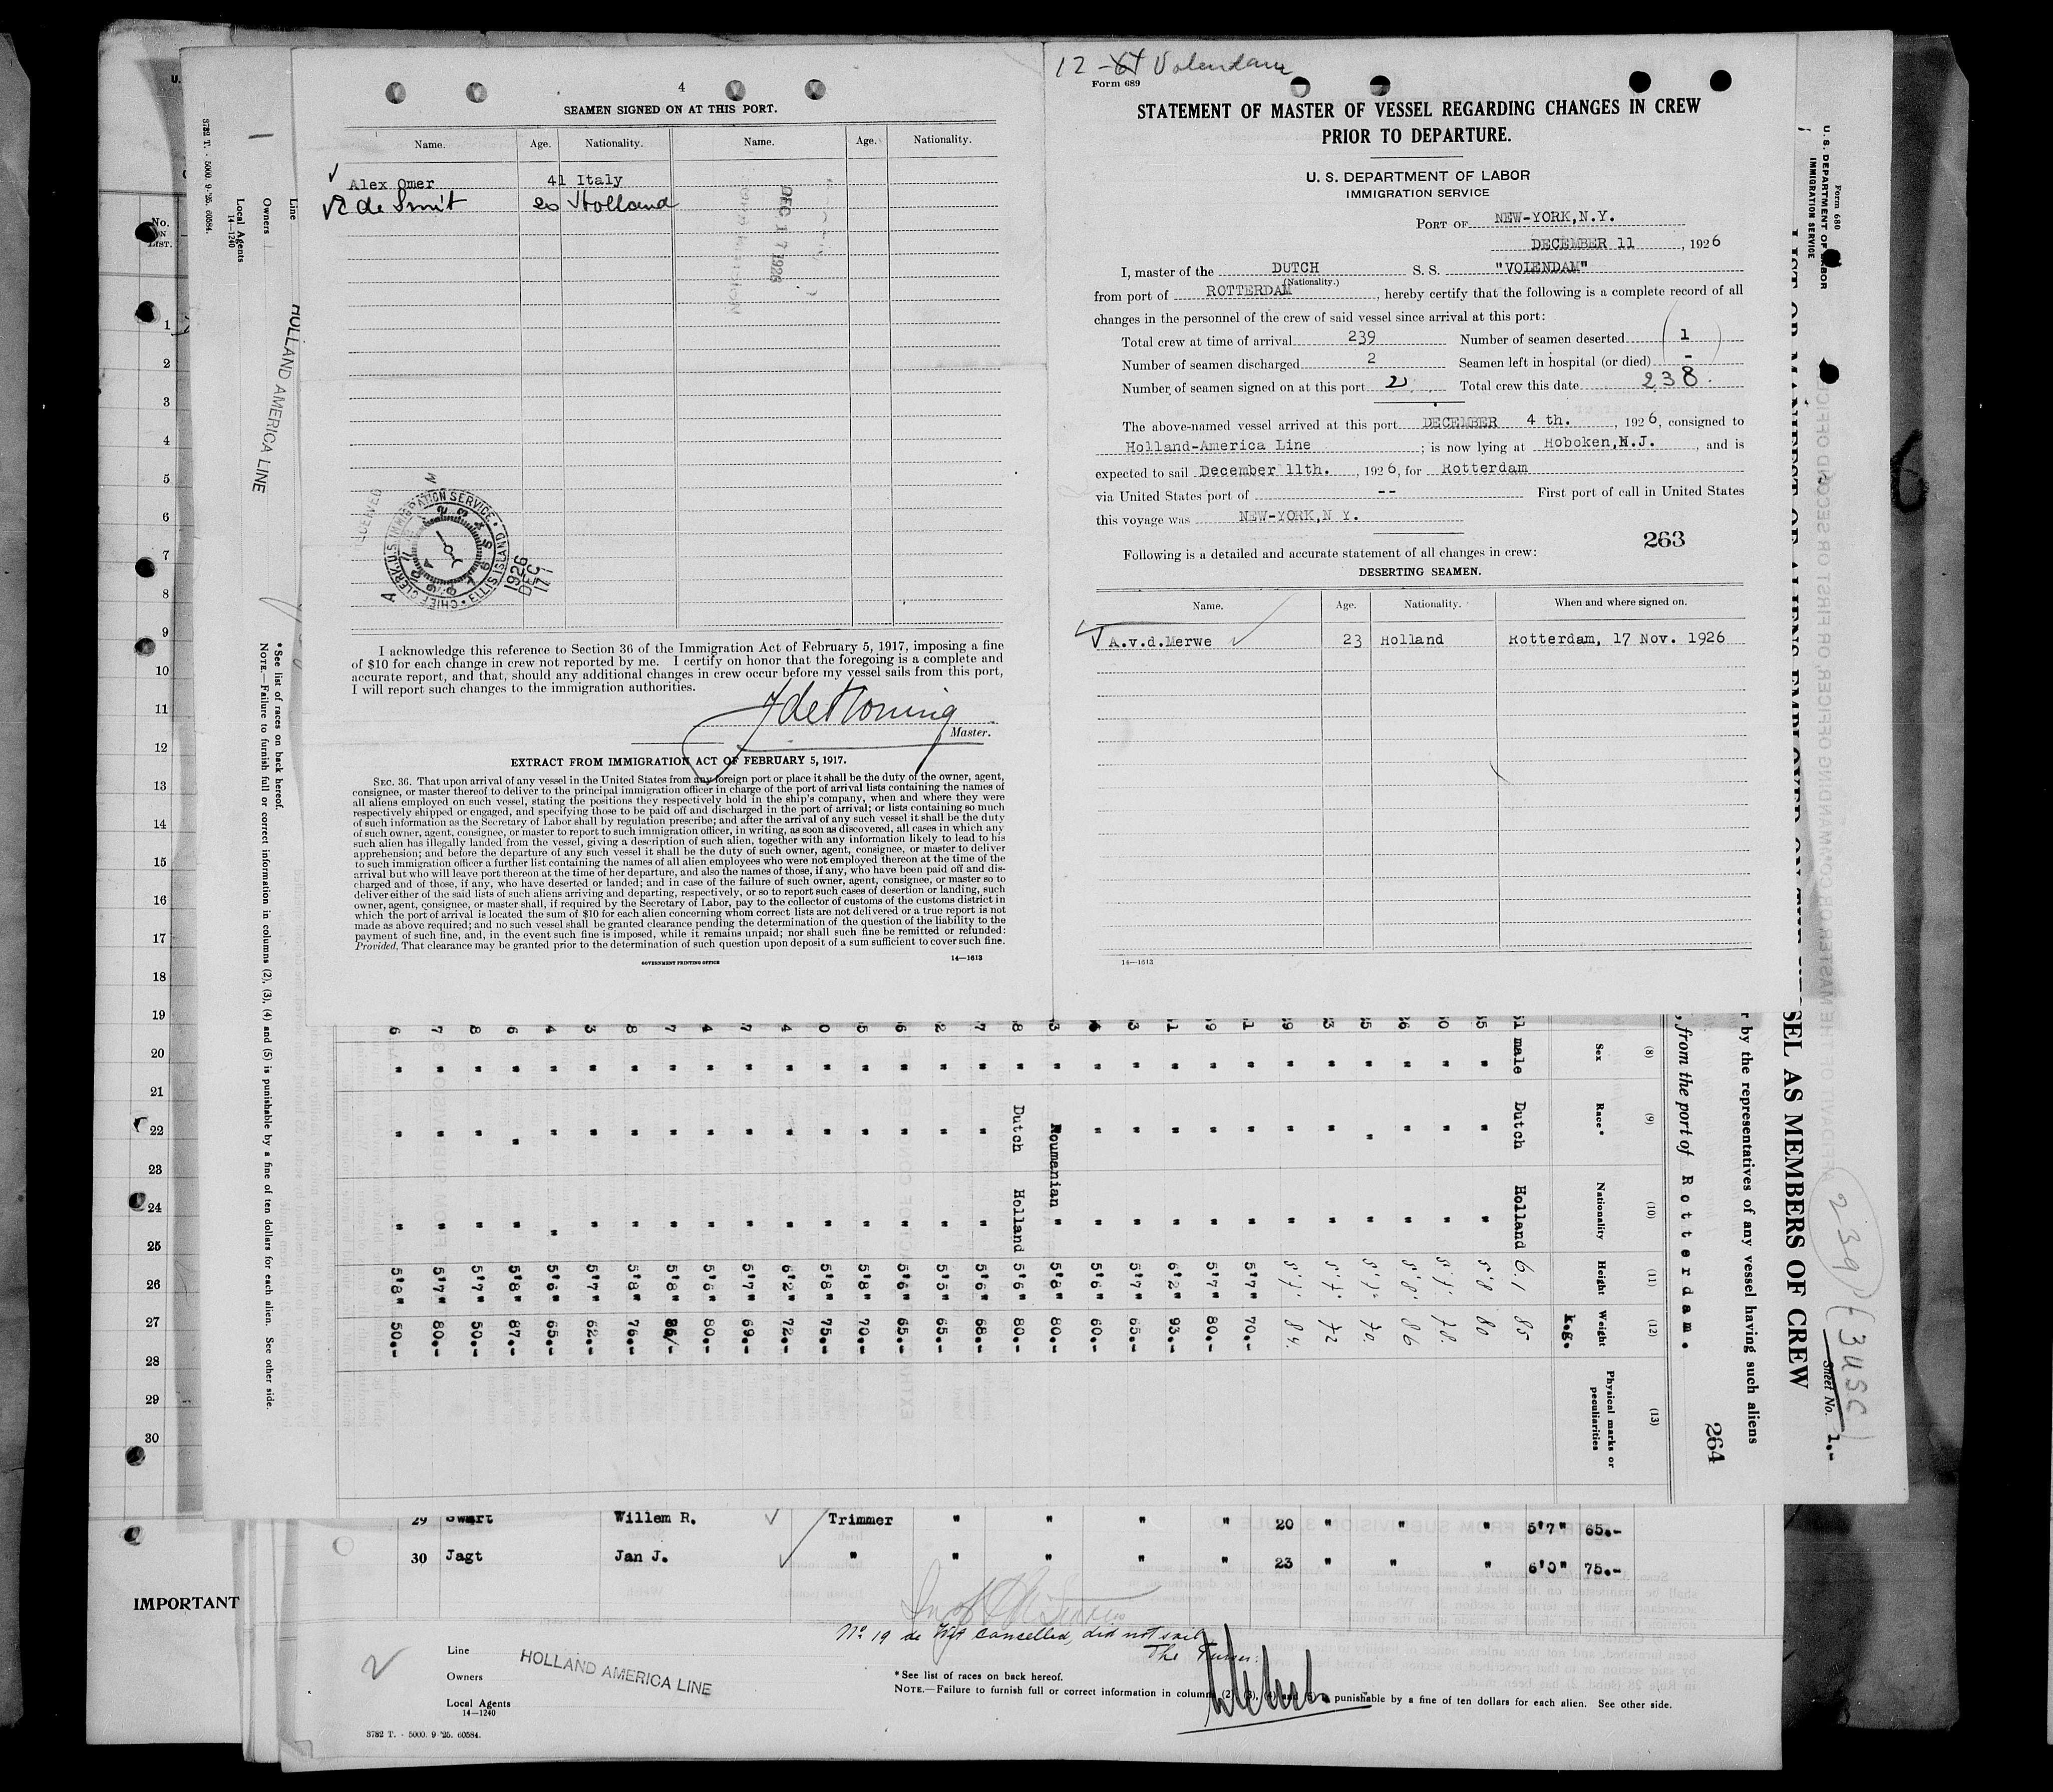 4
SEAMEN SIGNED ON AT THIS PORT.
Name. Age. Nationality. Name. Age. Nationality.
Alex Omer 41 Italy
de Smit Holland
DEC 17 1926
CHIEF CLERK, U.S. IMMIGRATION SERVICE • ELLIS ISLAND
1926
DEC
17
I acknowledge this reference to Section 36 of the Immigration Act of February 5, 1917, imposing a fine
of $10 for each change in crew not reported by me. I certify on honor that the foregoing is a complete and
accurate report, and that, should any additional changes in crew occur before my vessel sails from this port,
I will report such changes to the immigration authorities.
J de Koning
Master.
EXTRACT FROM IMMIGRATION ACT OF FEBRUARY 5, 1917.
SEC. 36. That upon arrival of any vessel in the United States from any foreign port or place it shall be the duty of the owner, agent,
consignee, or master thereof to deliver to the principal immigration officer in charge of the port of arrival lists containing the names of
all aliens employed on such vessel, stating the positions they respectively hold in the ship's company, when and where they were
respectively shipped or engaged, and specifying those to be paid off and discharged in the port of arrival; or lists containing so much
of such information as the Secretary of Labor shall by regulation prescribe; and after the arrival of any such vessel it shall be the duty
of such owner, agent, consignee, or master to report to such immigration officer, in writing, as soon as discovered, all cases in which any
such alien has illegally landed from the vessel, giving a description of such alien, together with any information likely to lead to his
apprehension; and before the departure of any such vessel it shall be the duty of such owner, agent, consignee, or master to deliver
to such immigration officer a further list containing the names of all alien employees who were not employed thereon at the time of the
arrival but who will leave port thereon at the time of her departure, and also the names of those, if any, who have been paid off and dis-
charged and of those, if any, who have deserted or landed; and in case of the failure of such owner, agent, consignee, or master so to
deliver either of the said lists of such aliens arriving and departing, respectively, or so to report such cases of desertion or landing, such
owner, agent, consignee, or master shall, if required by the Secretary of Labor, pay to the collector of customs of the customs district in
which the port of arrival is located the sum of $10 for each alien concerning whom correct lists are not delivered or a true report is not
made as above required; and no such vessel shall be granted clearance pending the determination of the question of the liability to the
payment of such fine, and, in the event such fine is imposed, while it remains unpaid; nor shall such fine be remitted or refunded:
Provided, That clearance may be granted prior to the determination of such question upon deposit of a sum sufficient to cover such fine.
GOVERNMENT PRINTING OFFICE 14—1613
12 - Volendam
Form 689
STATEMENT OF MASTER OF VESSEL REGARDING CHANGES IN CREW
PRIOR TO DEPARTURE.
U. S. DEPARTMENT OF LABOR
IMMIGRATION SERVICE
PORT OF NEW-YORK,N.Y.
DECEMBER 11, 1926
I, master of the DUTCH S. S. "VOLENDAM"
(Nationality.)
from port of ROTTERDAM, hereby certify that the following is a complete record of all
changes in the personnel of the crew of said vessel since arrival at this port:
Total crew at time of arrival 239 Number of seamen deserted 1
Number of seamen discharged 2 Seamen left in hospital (or died) -
Number of seamen signed on at this port 2 Total crew this date 238.
The above-named vessel arrived at this port DECEMBER 4 th., 1926, consigned to
Holland-America Line; is now lying at Hoboken,N.J., and is
expected to sail December 11th., 1926, for Rotterdam
via United States port of -- First port of call in United States
this voyage was NEW-YORK,N Y.
263
Following is a detailed and accurate statement of all changes in crew:
DESERTING SEAMEN.
Name. Age. Nationality. When and where signed on.
A.v.d.Merwe 23 Holland Rotterdam, 17 Nov. 1926
14—1613
Form 680
U.S. DEPARTMENT OF LABOR
IMMIGRATION SERVICE
SEL AS MEMBERS OF CREW
239 (3 USC)
Sheet No. 1.-
by the representatives of any vessel having such aliens
264
, from the port of Rotterdam.
(8) (9) (10) (11) (12) (13)
Sex Race* Nationality Height Weight Physical marks or peculiarities
k.g.
male Dutch Holland 6.1 85
" " " 5'.8 80
" " " 5'.7. 78.
" " " 5'.8'. 86
" " " 5'.7. 70.
" " " 5'.7. 72
" " " 5'.7. 84.
" " " 5'7" 70.-
" " " 5'7" 80.-
" " " 6'2" 93.-
" " " 5'7" 65.-
" " " 5'6" 60.-
" Roumanian " 5'8" 80.-
" Dutch Holland 5'6" 80.-
" " " 5'6" 68.-
" " " 5'5" 65.-
" " " 5'6" 65.-
" " " 5'8" 70.-
" " " 5'8" 75.-
" " " 6'2" 72.-
" " " 5'7" 69.-
" " " 5'6" 80.-
" " " 5'8" 86.-
" " " 5'8" 76.-
" " " 5'7" 62.-
" " " 5'6" 65.-
" " " 5'8" 87.-
" " " 5'7" 50.-
" " " 5'7" 80.-
" " " 5'8" 50.-
Line HOLLAND AMERICA LINE
Owners
Local Agents
14—1240
3782 T. - 5000. 9-'25. 60584.
*See list of races on back hereof.
NOTE.—Failure to furnish full or correct information in columns (2), (3), (4) and (5) is punishable by a fine of ten dollars for each alien. See other side.
No. ON LIST.
1
2
3
4
5
6
7
8
9
10
11
12
13
14
15
16
17
18
19
20
21
22
23
24
25
26
27
28
29
30
IMPORTANT
29 Swart Willem R. Trimmer " " " " 20 " " " 5'7" 65.-
30 Jagt Jan J. " " " " " 23 " " " 6'0" 75.-
No 19 de Wit cancelled, did not sail
The Purser:
Line HOLLAND AMERICA LINE
Owners
Local Agents
14—1240
*See list of races on back hereof.
NOTE.—Failure to furnish full or correct information in columns (2), (3), (4) and (5) is punishable by a fine of ten dollars for each alien. See other side.
3782 T. - 5000. 9-'25. 60584.